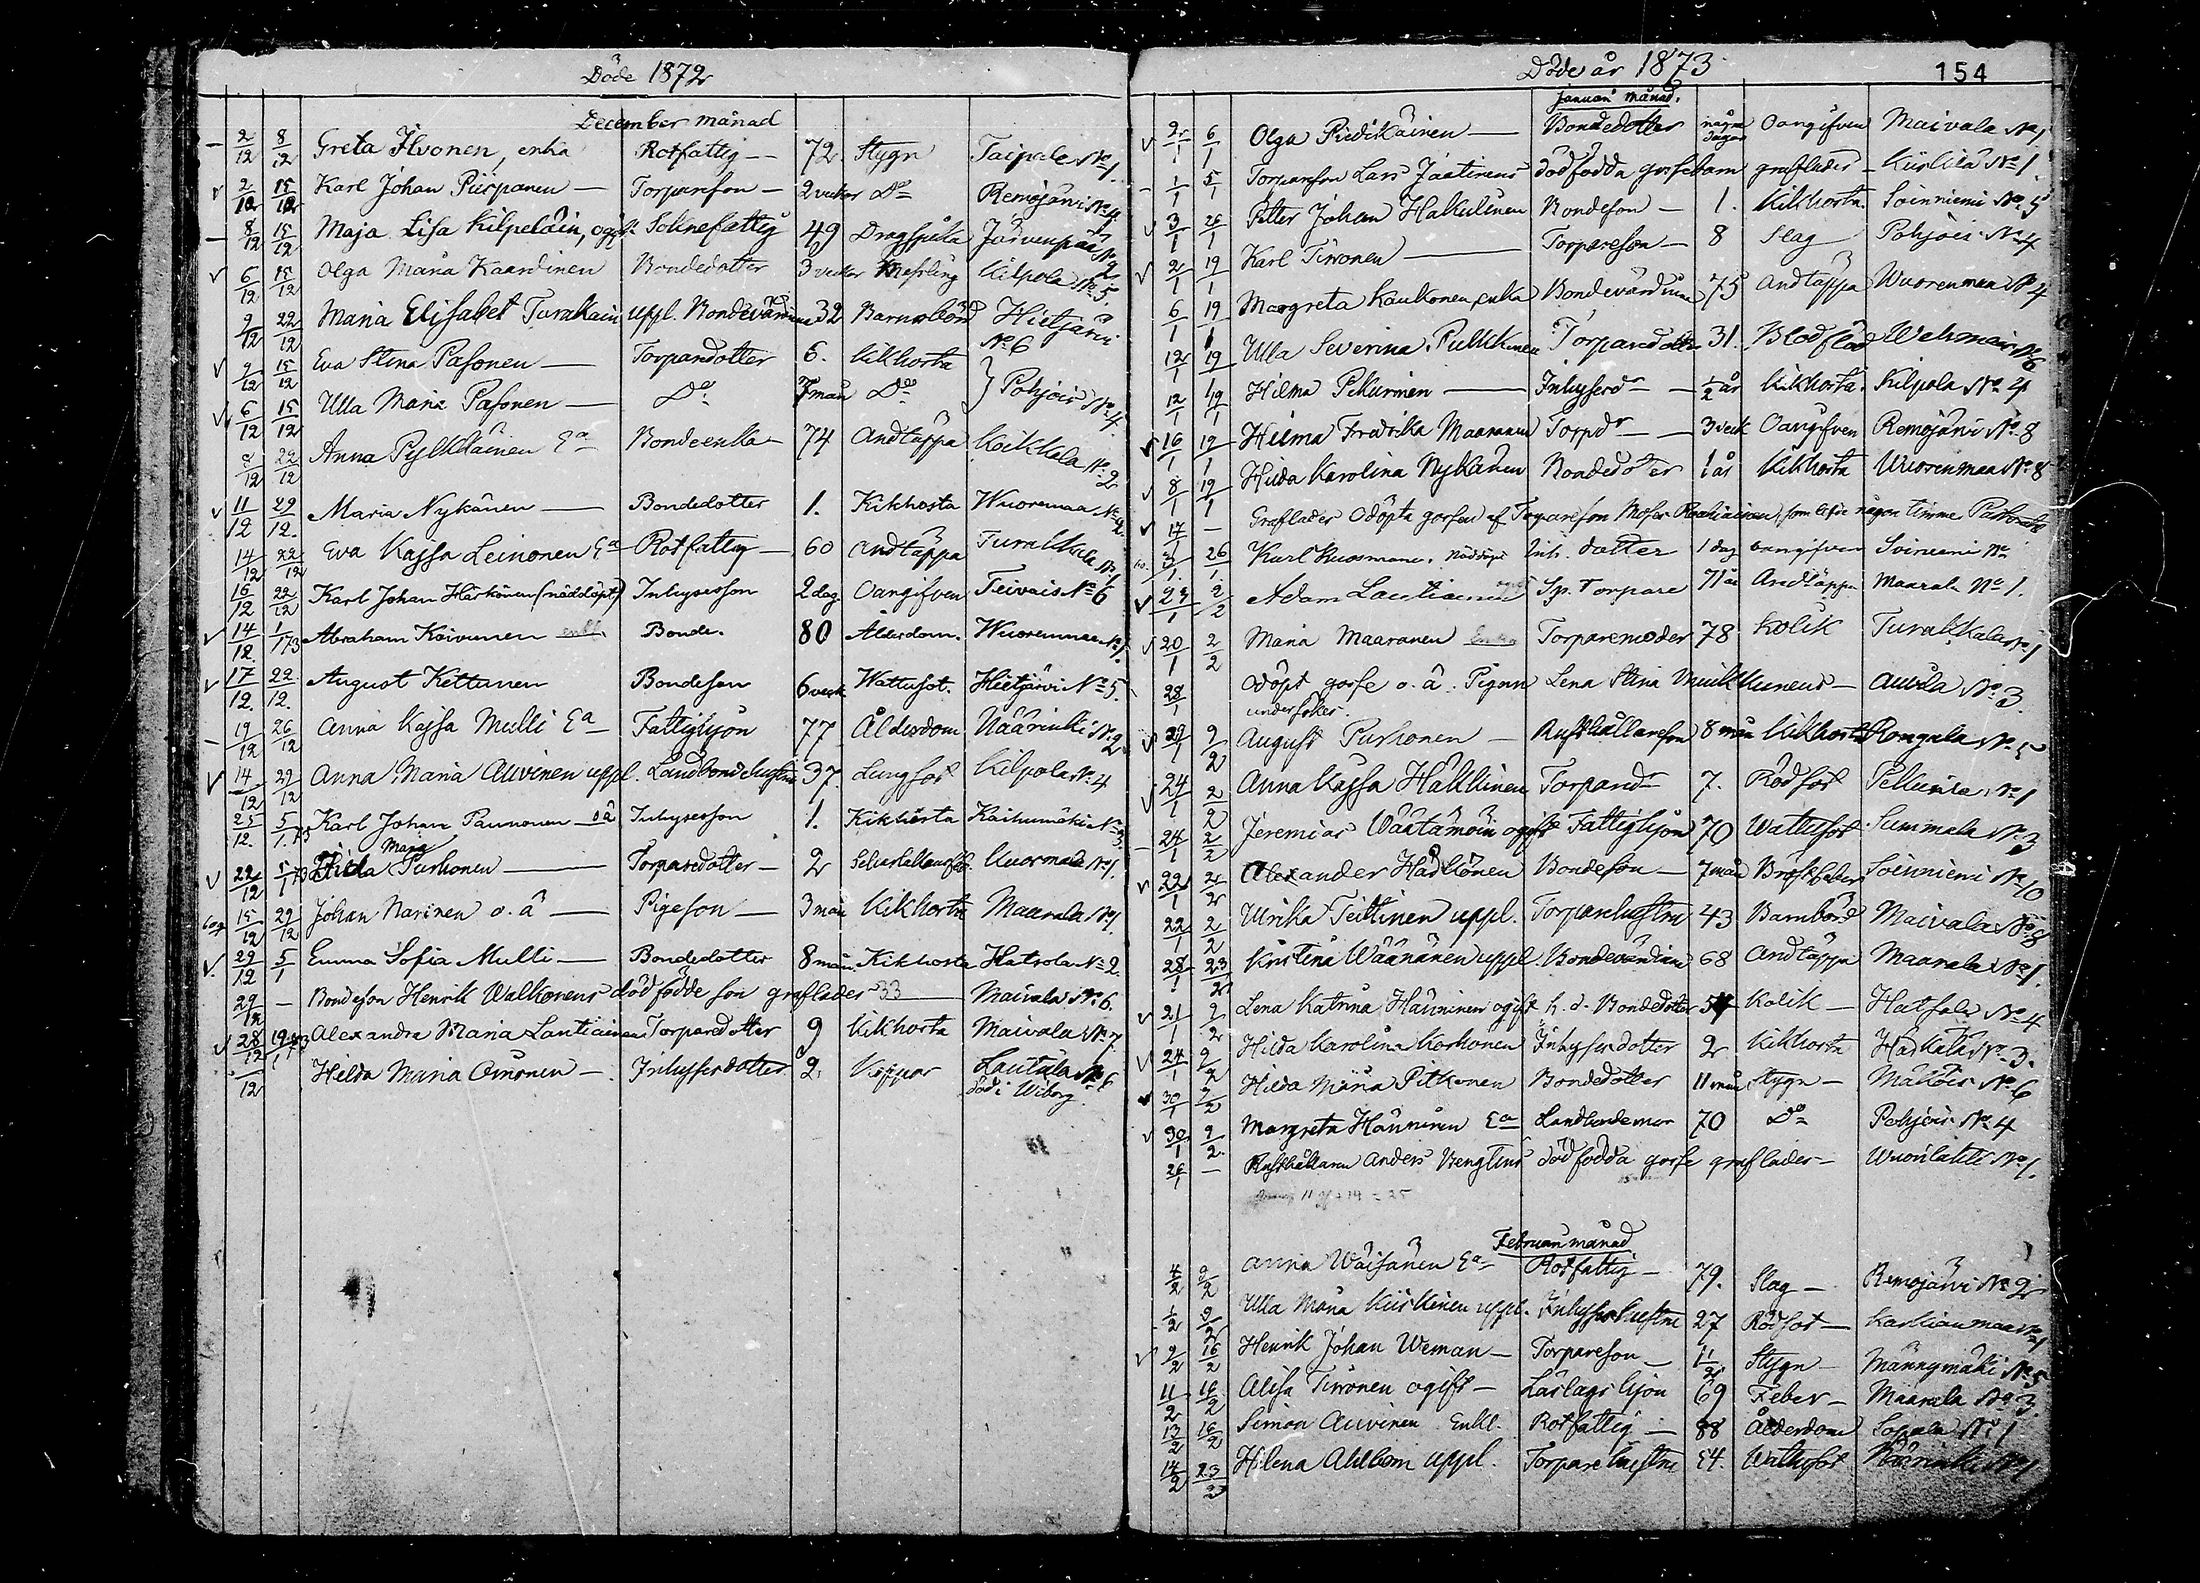 Döde 1872
December månad
2/12 8/12 Greta Ihvonen, enka Rotfattig 72. Stygn Taipale No 1.
2/12 15/12 Karl Johan Piispanen Torpareson 2 veckor Do Remojärvi No 4
8/12 15/12 Maja Lisa Kilpeläin, ogift Soknefattig 49 Dragsjuka Järvenpää No 2
6/12 15/12 Olga Maria Kaardinen Bondedotter 3 veckor Messling Kilpola No 5
9/12 22/12 Maria Elisabet Turakain uppl. Bondevärdinna 32 Barnsbörd Hietjärvi No 6
9/12 15/12 Eva Stina Pasonen Torparedotter 6. Kikhosta
6/12 15/12 Ulla Maria Pasonen Do 7 mån Do } Pohjois No 4
8/12 22/12 Anna Pylkkäinen Ea Bondeenka 74 Andtäppa Koikkala No 2
11/12 29/12. Maria Nykänen Bondedotter 1. Kikhosta Wuorenmaa No 2.
14/12 22/12 Eva Kajsa Leinonen Ea Rotfattig 60 Andtäppa Turakkala No 1
16/12 22/12 Karl Johan Härkönen (nöddöpt) Inhysesson 2 dag. Oangifven Teivais No 6
14/12. 1/1 73 Abraham Koivunen enkl. Bonde. 80 Ålderdom. Wuorenmaa No 1.
17/12. 22/12. August Kettunen Bondeson 6 veck Wattusot. Hietjärvi No 5.
19/12 26/12 Anna Kajsa Mulli Ea Fattighjon 77 Ålderdom Näärinki No 2
14/12 29/12 Anna Maria Auvinen uppl. Landbondehustru 37. Lungsot Kilpola No 4
25/12. 5/1.73 Karl Johan Paunonen oä Inhysesson 1. Kikhosta Kaihumäki No 3.
22/12 5/1 73 Hilda Maria Purhonen Torparedotter 2 Kuosmala No 1.
15/12 29/12 Johan Narinen o. ä Pigeson 3 mån Kikhosta Maarala No 1.
29/12 5/1 Emma Sofia Mulli Bondedotter 8 mån. Kikhosta Hatsola No 2.
29/12 — Bondeson Henrik Walkonens dödfödde son graflades 33 Maivala No 6.
28/12 19/1 73 Alexandra Maria Lautiainen Torparedotter 9 Kikhosta Maivala No 7
/12 Hilda Maria Oinonen Inhysesdotter 2. Koppor Lautala No 6
död i Wiborg
Döde år 1873
154
Januari månad.
2/1 6/1 Olga Piedikäinen Bondedotter några dagar Oangifven Maivala No 1
1/1 5/1 Torpareson Lars Jäntinens dödfödda gossebarn graflades Kiislilä No 1
3/1 26/1 Petter Johan Hakulinen Bondeson 1. Kikhosta. Soinniemi No 5
2/1 19/1 Karl Tirronen Torpareson 8 Slag Pohjois No 4
6/1 19/1 Margreta Kaukonen, enka Bondevärdinna 75 Andtäppa Wuorenmaa No 4
12/1 19/1 Ulla Severina Pulkkinen Torparedotter 31. Blodflöd Wehmais No 6
12/1 19/1 Hilma Pekurinen Inhysesdr 1/2 år Kikhosta Kilpola No 4
16/1 19/1 Hilma Fredrika Maaranen Torpdr 3 veck Oangifven Remojärvi No 8
8/1 19/1 Hilda Karolina Nykänen Bondedotter 1 år Kikhosta Wuorenmaa No 8
17/1 — Graflades Odöpta gossen af Torpareson som lefde någon timme
3/1. 26/1 Karl Kuosmane. Nöddöpt Inh. dotter 1 dag oangifven Soiniemi No
23/1 2/2 Adam Lautiainen ogift Sp. Torpare 71 år Andtäppa Maarala No 1.
20/1 2/2 Maria Maaranen Enka Torparemoder 78 Kolik Turakkala No 1
28/1 Odöpt gosse o. ä. Pigan Lena Stina Munkkunens Auvila No 3.
undersökes.
29/1 9/2 August Purhonen Rusthållareson 8 mån Kikhosta Rongala No 5
24/1 2/2 Anna Kajsa Häkkinen Torparedr 7. Rödsot Pellunla No 1
24/1 2/2 Jeremias Wäätämöin ogift Fattighjon 70 Wattusot Summala No 3
22/1 2/2 Alexander Härkönen Bondeson 7 mån Bröstfeber Soinniemi No 10
22/1 2/2 Ulrika Teittinen uppl. Torparehustru 43 Barnbörd Maivala No 8
28/1 23/2 Kristina Wäänänen uppl. Bondevärdinna 68 Andtäppa Maarala No 1.
21/1 2/2 Lena Katrina Hänninen ogift h. d. Bondedotter 54 Kolik Hatsola No 4
24/1 9/2 Hilda Karolina Korhonen Inhysesdotter 2 Kikhosta Härkälä No 3.
30/1 9/2 Hilda Maria Pitkonen Bondedotter 11 mån Stygn Mäkois No 6
30/1 9/2. Margreta Hänninen Ea Landbondemor 70 Do Pohjois No 4
26/1 — Rusthållaren Anders Bengtius dödfödda gosse graflades Wuolahti No 1.
11 + 14 = 25
Februari månad
4/2 9/2 Anna Wäisänen Ea Rotfattig 79. Slag Remojärvi No 2
1/2 9/2 Ulla Maria Kiiskinen uppl. Inhyseshustru 27 Rödsot Karhianmaa No 1
9/2 16/2 Henrik Johan Weman Torpareson 11/2 Stygn Männymäki No 5
11/2 16/2 Alisa Tirronen ogift Läslagshjon 69 Feber Maarala No 3
13/2 16/2 Simon Auvinen Enkl. Rotfattig 88 Ålderdom Loopala No 1
14/2 23/2 Helena Ahlbom uppl. Torparehustru 54. Wattusot Näärinki No 1